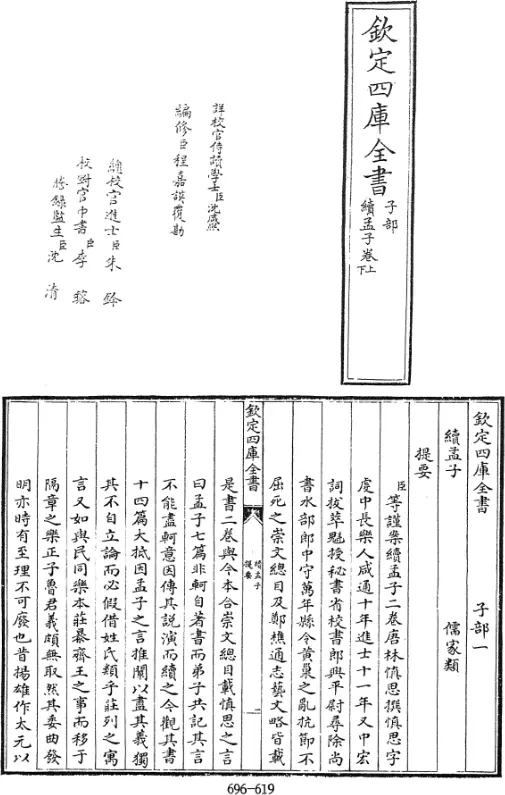 欽定四庫全書
子部
續孟子卷上下
詳校官侍讀學士臣沈咸熙
編修臣程嘉謨覆勘
總校官進士臣朱鈐
校對官中書臣李榕
謄錄監生臣沈清
欽定四庫全書 子部一
續孟子 儒家類
提要
臣等謹案續孟子二卷唐林慎思撰慎思字
虔中長樂人咸通十年進士十一年又中宏
詞拔萃魁授秘書省校書郎興平尉尋除尚
書水部郎中守萬年縣令黃巢之亂抗節不
屈死之崇文總目及鄭樵通志藝文略皆載
欽定四庫全書
續孟子
提要
一
是書二卷與今本合崇文總目載慎思之言
曰孟子七篇非軻自著書而弟子共記其言
不能盡軻意因傳其說演而續之今觀其書
十四篇大抵因孟子之言推闡以盡其義獨
其不自立論而必假借姓氏類乎莊列之寓
言又如與民同樂本莊暴齊王之事而移于
隔章之樂正子魯君義頗無取然其委曲發
明亦時有至理不可廢也昔揚雄作太元以
696-619